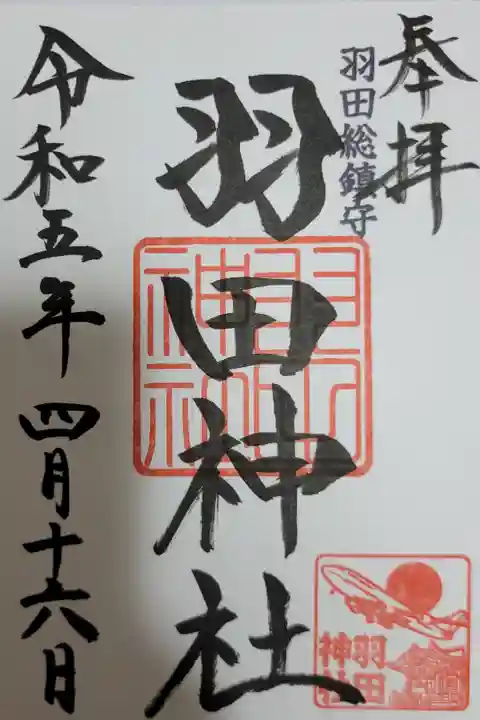 奉拝
羽田総鎮守
羽田神社
羽田神社
令和五年四月十六日
羽田
神社